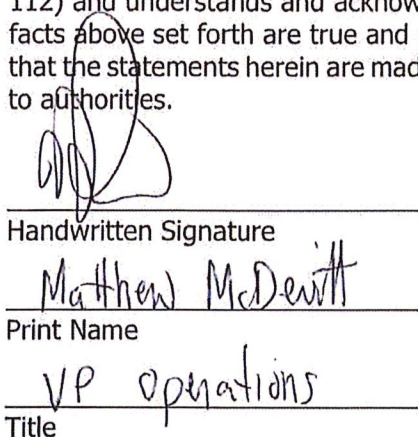 112) and understands and acknow
facts above set forth are true and
that the statements herein are mad
to authorities.
Handwritten Signature
Matthew McDevitt
Print Name
VP Operations
Title